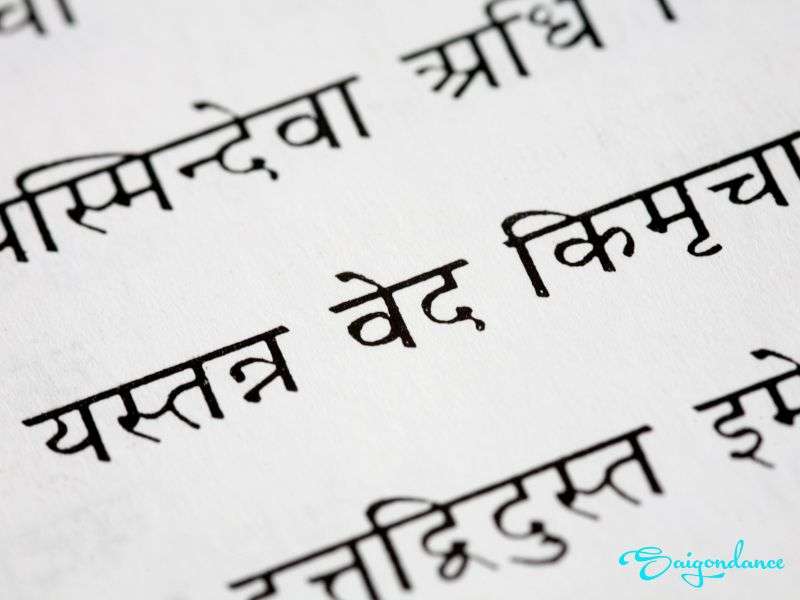 यस्मिन्देवा अधि ।
यस्तन्न वेद किमृचा
इत्तद्विदुस्त इमे
Saigondance